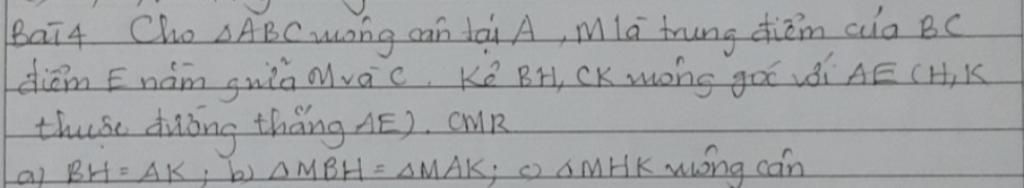 Bài 4 Cho ΔABC vuông cân tại A, M là trung điểm của BC
điểm E nằm giữa M và C. Kẻ BH, CK vuông góc với AE (H, K
thuộc đường thẳng AE). CMR
a) BH = AK; b) ΔMBH = ΔMAK; c) ΔMHK vuông cân